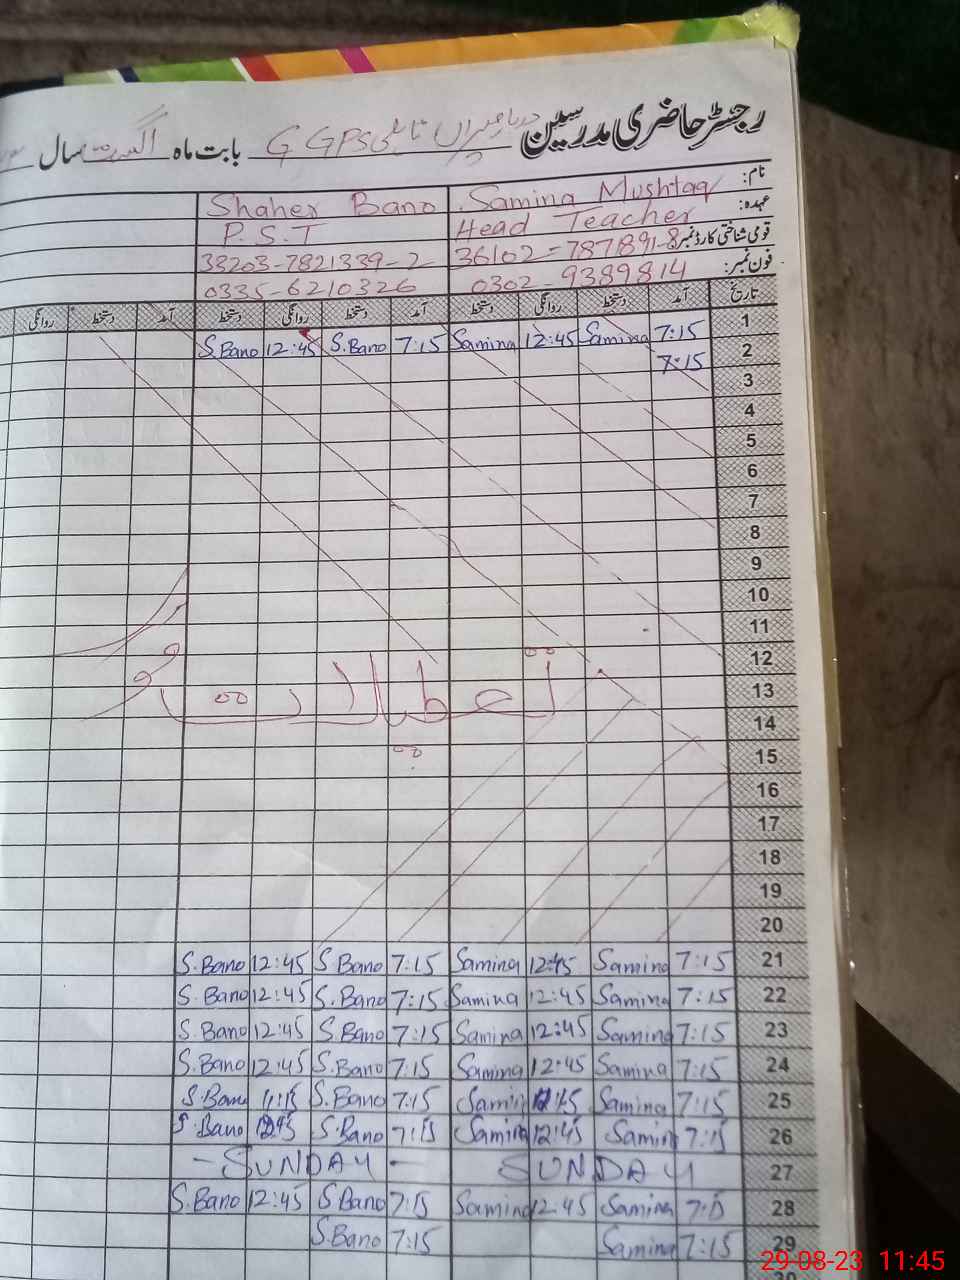 رجسٹر حاضری مدرسین G GPS بابت ماہ اگست سال
نام: Samina Mushtaq Shaher Bano
عہدہ: Head Teacher P.S.T
قومی شناختی کارڈ نمبر: 36102-787891-8 33203-7821339-2
فون نمبر: 0302-9389814 0335-6210326
تاریخ آمد دستخط روانگی دستخط آمد دستخط روانگی دستخط آمد دستخط روانگی
1 7:15 Samina 12:45 Samina 7:15 S.Bano 12:45 S.Bano
2 7:15
3
4
5
6
7
8
9
10
11
12
13 تعطیلات
14
15
16
17
18
19
20
21 7:15 Samina 12:45 Samina 7:15 S.Bano 12:45 S.Bano
22 7:15 Samina 12:45 Samina 7:15 S.Bano 12:45 S.Bano
23 7:15 Samina 12:45 Samina 7:15 S.Bano 12:45 S.Bano
24 7:15 Samina 12:45 Samina 7:15 S.Bano 12:45 S.Bano
25 7:15 Samina Samina 7:15 S.Bano S.Bano
26 7:15 Samina 12:45 Samina 7:15 S.Bano 12:45 S.Bano
27 SUNDAY - SUNDAY -
28 Samina 12:45 Samina 7:15 S.Bano 12:45 S.Bano
29 7:15 Samina 7:15 S.Bano
29-08-23 11:45